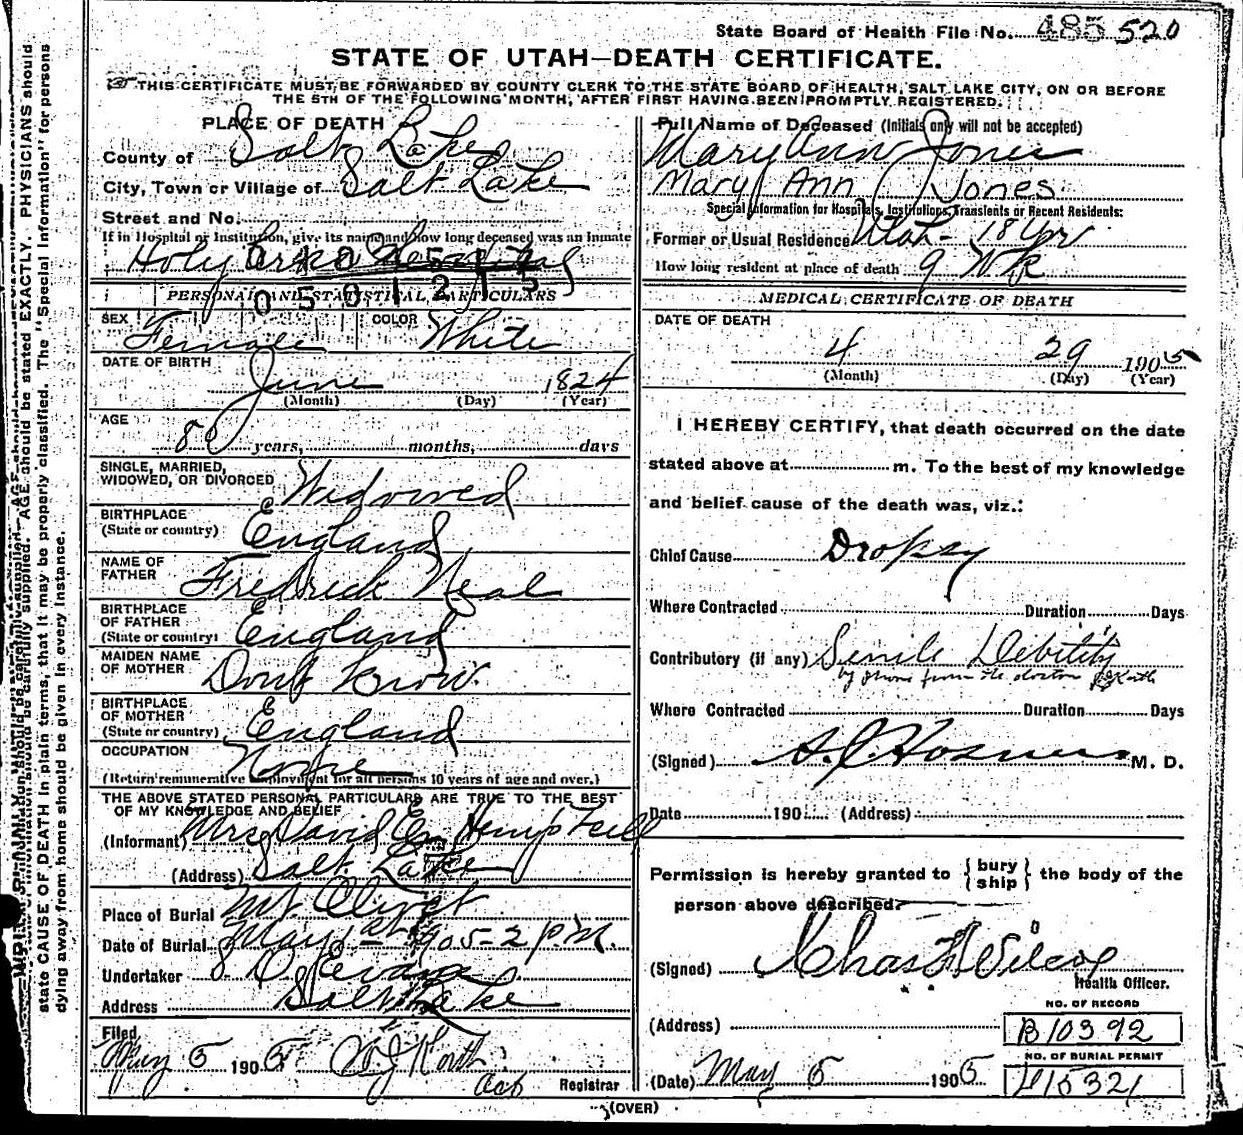 State Board of Health File No. 485 520
STATE OF UTAH—DEATH CERTIFICATE.
THIS CERTIFICATE MUST BE FORWARDED BY COUNTY CLERK TO THE STATE BOARD OF HEALTH, SALT LAKE CITY, ON OR BEFORE
THE 5TH OF THE FOLLOWING MONTH, AFTER FIRST HAVING BEEN PROMPTLY REGISTERED.
PLACE OF DEATH
County of Salt Lake
City, Town or Village of Salt Lake
Street and No.
If in Hospital or Institution, give its name and how long deceased was an inmate
Holy Cross Hospital
0501215
PERSONAL AND STATISTICAL PARTICULARS
SEX Female COLOR White
DATE OF BIRTH June 1824
(Month) (Day) (Year)
AGE 80 years, months, days
SINGLE, MARRIED,
WIDOWED, OR DIVORCED Widowed
BIRTHPLACE
(State or country) England
NAME OF
FATHER Fredrick Neal
BIRTHPLACE
OF FATHER
(State or country) England
MAIDEN NAME
OF MOTHER Dont Know.
BIRTHPLACE
OF MOTHER
(State or country) England
OCCUPATION None
(Return remunerative employment for all persons 10 years of age and over.)
THE ABOVE STATED PERSONAL PARTICULARS ARE TRUE TO THE BEST
OF MY KNOWLEDGE AND BELIEF
(Informant) Mrs David
(Address) Salt Lake
Place of Burial Mt Olivet
Date of Burial May 1st 1905 - 2 P.M.
Undertaker Evans
Address Salt Lake
Filed
May 5 1905
Registrar
Full Name of Deceased (Initials only will not be accepted)
Mary Ann Jones
Mary Ann Jones
Special Information for Hospitals, Institutions, Transients or Recent Residents:
Former or Usual Residence Utah - 18 Yr
How long resident at place of death 9 Wk
MEDICAL CERTIFICATE OF DEATH
DATE OF DEATH
4 29 1905
(Month) (Day) (Year)
I HEREBY CERTIFY, that death occurred on the date
stated above at m. To the best of my knowledge
and belief cause of the death was, viz.:
Chief Cause Dropsy
Where Contracted Duration Days
Contributory (if any) Senile Debility
by phone from the doctor
Where Contracted Duration Days
(Signed) M. D.
Date 190 (Address)
Permission is hereby granted to { bury ship } the body of the
person above described.
(Signed) Chas Wilcox
Health Officer.
NO. OF RECORD
(Address) B10392
NO. OF BURIAL PERMIT
(Date) May 5 1905 15321
(OVER)
state CAUSE OF DEATH in plain terms, that it may be properly classified. The "Special Information" for persons
dying away from home should be given in every instance.
AGE should be stated EXACTLY. PHYSICIANS should